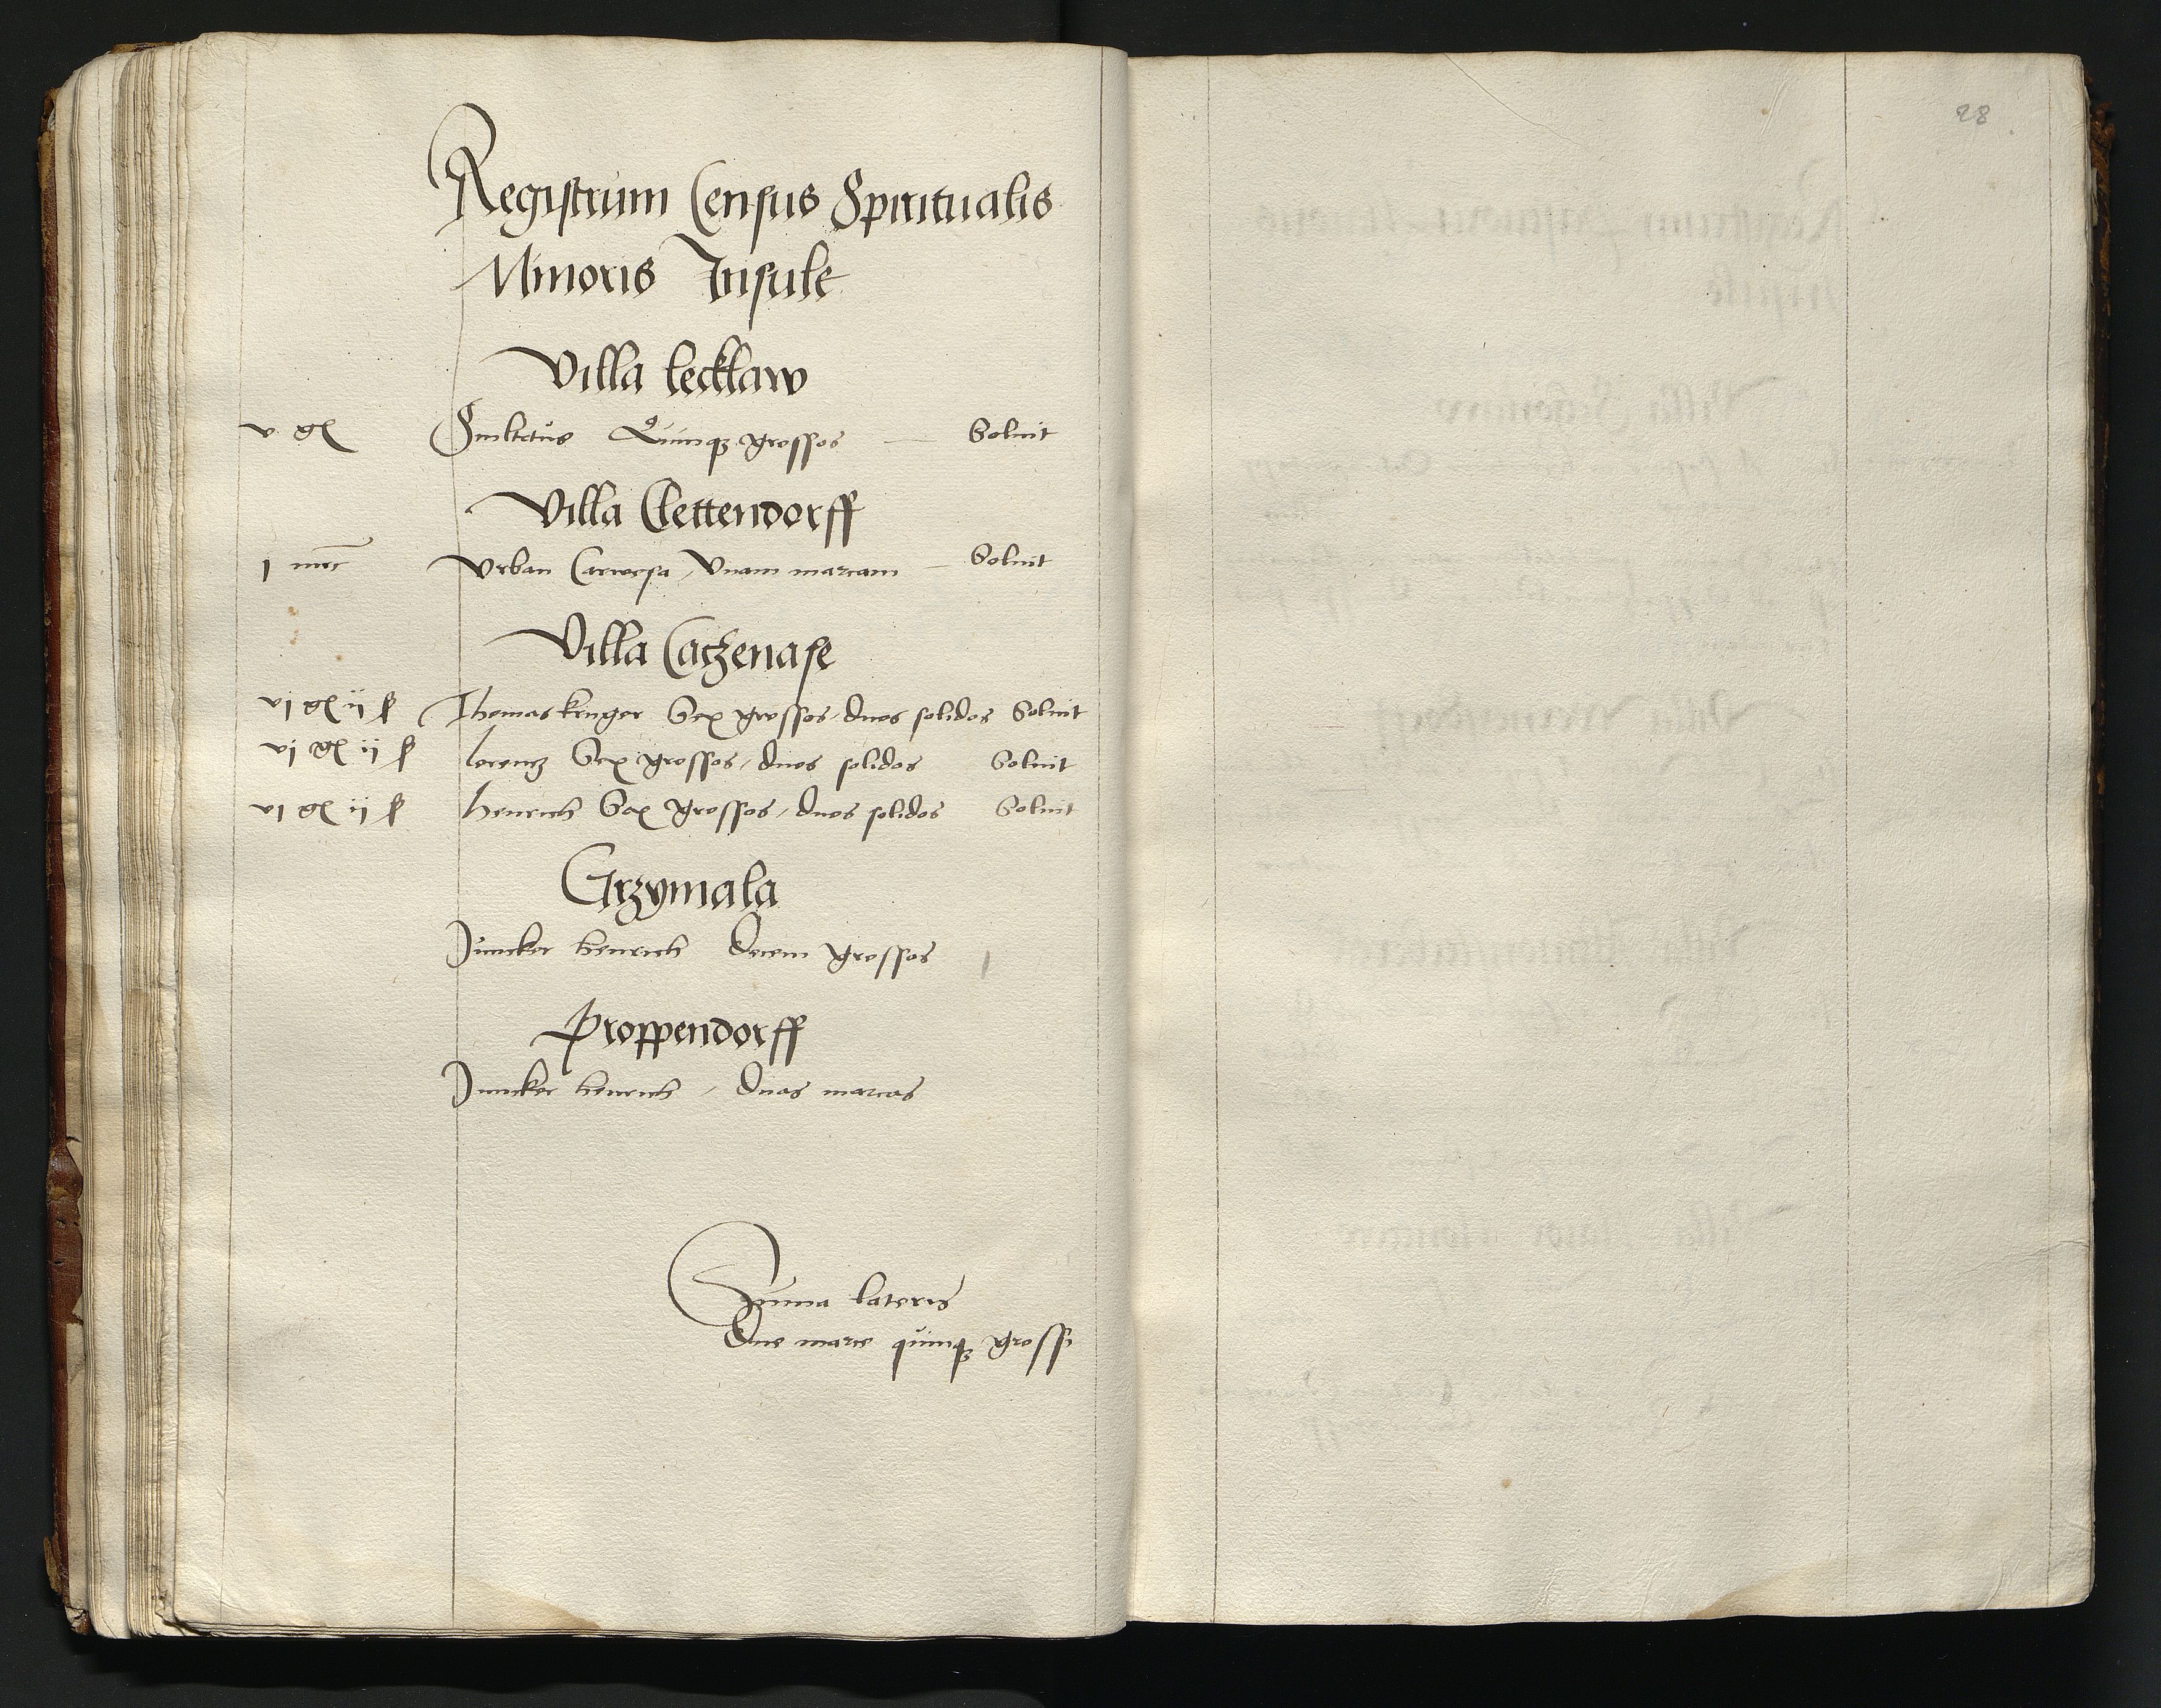 Registrum Census Spiritualis
Minoris Insule
Villa lecklaw
v gr Scultetus Quinqz grossos Soluit
Villa Clettendorff
j mrc Vrban Carwesa, Vnam marcam Soluit
Villa Caczenase
vj gr ij ß Thomas kruger Sex grossos, duos solidos Soluit
vj gr ij ß lorencz Sex grossos, duos solidos Soluit
vj gr ij ß henrich Sex grossos, duos solidos Soluit
Grzymala
Juncker henrich decem grossos
Proppendorff
Juncker henrich, duas marcas
Suma lateris
due marce quinqz grossi
28